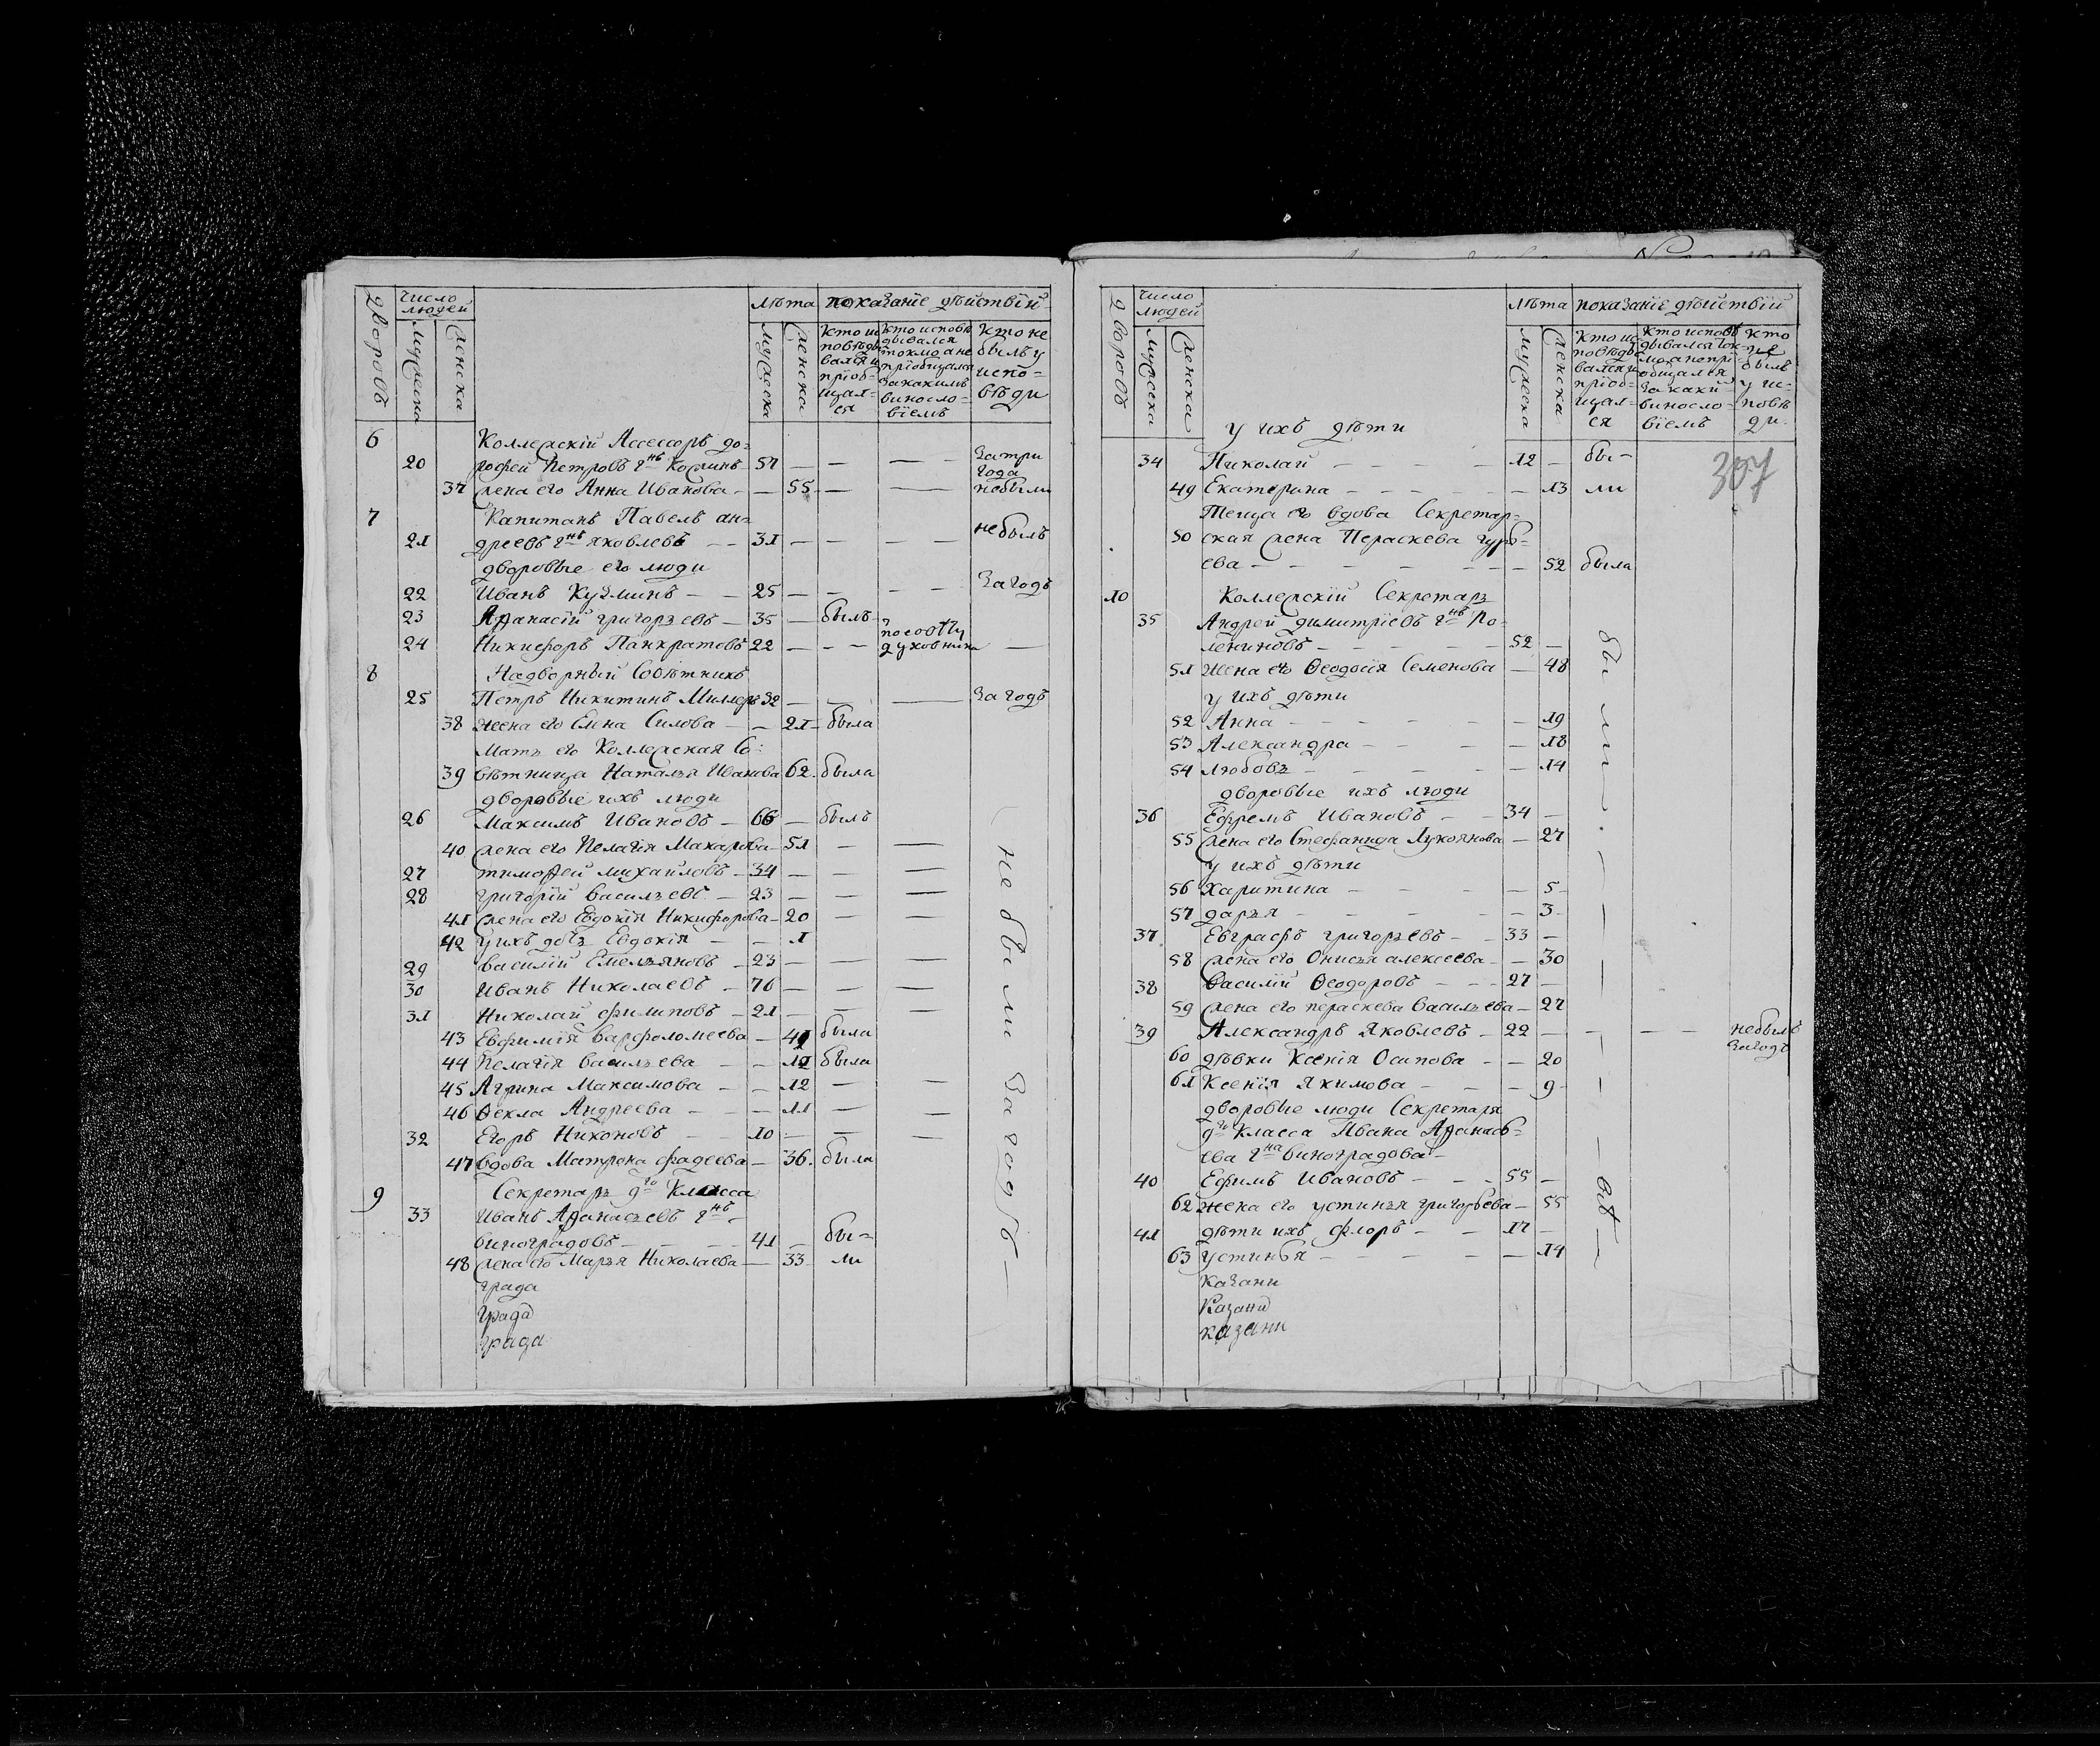 дворовъ
число людей
мужеска
женска
лѣта
показанïе дѣйствïй
мужеска
женска
кто исповѣдывался и прïобщался
кто исповѣдывался токмо а не прïобщался за какимъ винословïемъ
кто не былъ у исповѣди
6 Коллежскïй Ассесоръ до=
20 рофей Петровъ 57 — — — За три года
37 жена его Анна Иванова — — 55 — — небыли
7 Капитанъ Павелъ ан=
21 дреевъ г нъ Яковлевъ — — 31 — — — небылъ
дворовые его люди
22 Иванъ Кузминъ — — 25 — — — За годъ
23 Афанасïй григорьевъ — 35 — былъ
24 Никифоръ Панкратовъ 22 — — — по совѣту духовника —
8 Надворный Совѣтникъ
25 Петръ Никитинъ Миллеръ 32 — — — За годъ
38 жена его Елена Силова — — 21 — была
Мать его Коллежская Со=
39 вѣтница Наталья Иванова 62 была
дворовые ихъ люди
26 Максимъ Ивановъ — 66 — былъ
40 жена его Пелагïя Макарова — 51 — —
27 тимофей михайловъ — 34 — — —
28 григорïй васильевъ — 23 — — —
41 жена его Евдокïя Никифорова — 20 — —
42 у ихъ дочь Евдокïя — — 1
29 василïй Емельяновъ — 23 — — —
30 Иванъ Николаевъ — 70 — — —
31 Николай филиповъ — 21 — — —
43 Евфимïя Варфоломеева — 41 была
44 Пелагïя васильева — — 12 была
45 Агрипа Максимова — — 12 — —
46 Ѳекла Андреева — — — 11 — —
32 Егоръ Никоновъ — — 10 — — —
47 вдова Матрона фадеева — 36 была
небыли За годъ —
9 Секретарь 9 го Класса
33 Иванъ Афанасьевъ г нъ
виноградовъ — — — 41 — бы=
48 жена его Марья Николаева — 33 ли
града
града
града
дворовъ
число людей
мужеска
женска
лѣта
показанïе дѣйствïй
мужеска
женска
кто исповѣдывался и прïобщался
кто исповѣдывался токмо а не прïобщался за какимъ винословïемъ
кто не былъ у исповѣди
307
у ихъ дѣти
34 Николай — — — 12 — бы=
49 Екатерина — — — — 13 ли
Теща его вдова Секретар=
50 ская жена Параскева гурь=
ева — — — — — 52 была
10 Коллежскïй Секретарь
35 Андрей димитрïевъ г нъ По=
лениновъ — — — — 52 —
51 Жена его Ѳеодосïя Семенова — 48
у ихъ дѣти
52 Анна — — — — 19
53 Александра — — — — 18
54 любовь — — — — 14
дворовые ихъ люди
36 Ефремъ Ивановъ — — 34 —
55 жена его Стефанида Лукоянова — 27
у ихъ дѣти
56 Харитина — — — — 5
57 дарья — — — — 3
37 Евграфъ григорьевъ — 33 —
58 жена его Онисья алексеева — 30
38 Василïй Ѳеодоровъ — — 27 —
59 жена его параскева васильева — 27
39 Александръ Яковлевъ — 22 — — — небылъ за годъ
60 дѣвки Ксенïя Осипова — — 20
61 Ксенïя Якимова — — — 9
дворовые люди Секретаря
9 го класса Ивана Афанась=
ева г на виноградова
40 Ефимъ Ивановъ — — 55 —
62 жена его устинья григорьева — 55
41 дѣти ихъ флоръ — — 17 —
63 устинья — — — — 14
были
Казани
Казани
казани